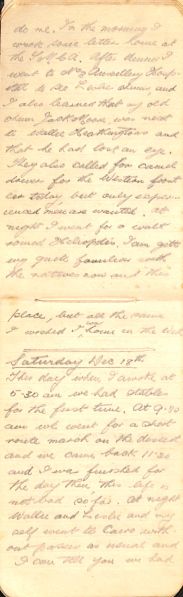 do me. In the morning I
wrote some letters home at
the Y.M.C.A. After dinner I
went to No 2 Auxiliary Hosp-
ital to see Leslie and
I also learned that my old
chum Jack Moore was next
to Wallie Heathington and
that he had lost an eye.
They also called for camel
drivers for the Western front
today but only exper-
ienced men are wanted. At
night I went for a walk
round Heliopolis. I am getting
quite familiar with
the natives now and this
place, but all the same
I wished I was home in the
Saturday Dec 18th
This day when I awoke at
5-30 am we had stables
for the first time. At 9-30
am we went for a short
route march on the desert
and we came back 11:30
and I was finished for
the day then, this life is
not bad so far. At night
Wallie and Leslie and my
self went to Cairo with
out passes as usual and
I can tell you we had